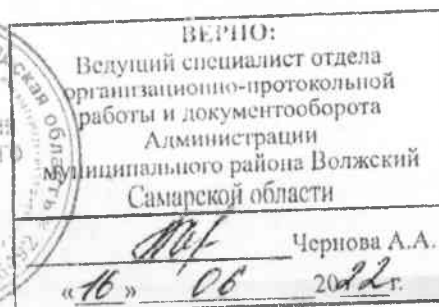 ВЕРНО:
Ведущий специалист отдела
организационно-протокольной
работы и документооборота
Администрации
муниципального района Волжский
Самарской области
Чернова А.А.
«16» 06 2022 г.